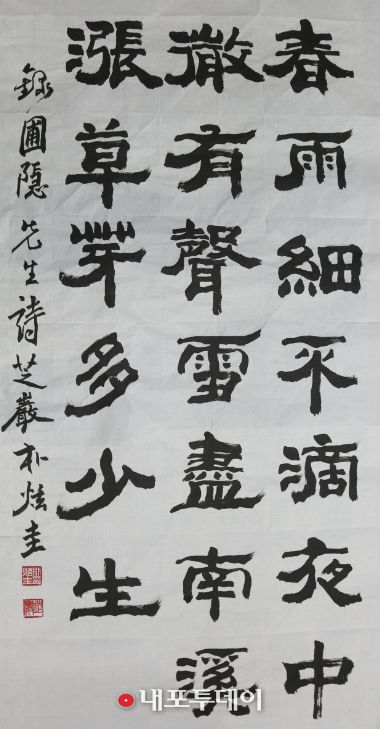 春雨細不滴夜中
微有聲雪盡南溪
漲草芽多少生
錄圃隱先生詩芝巖朴炫圭
내포투데이